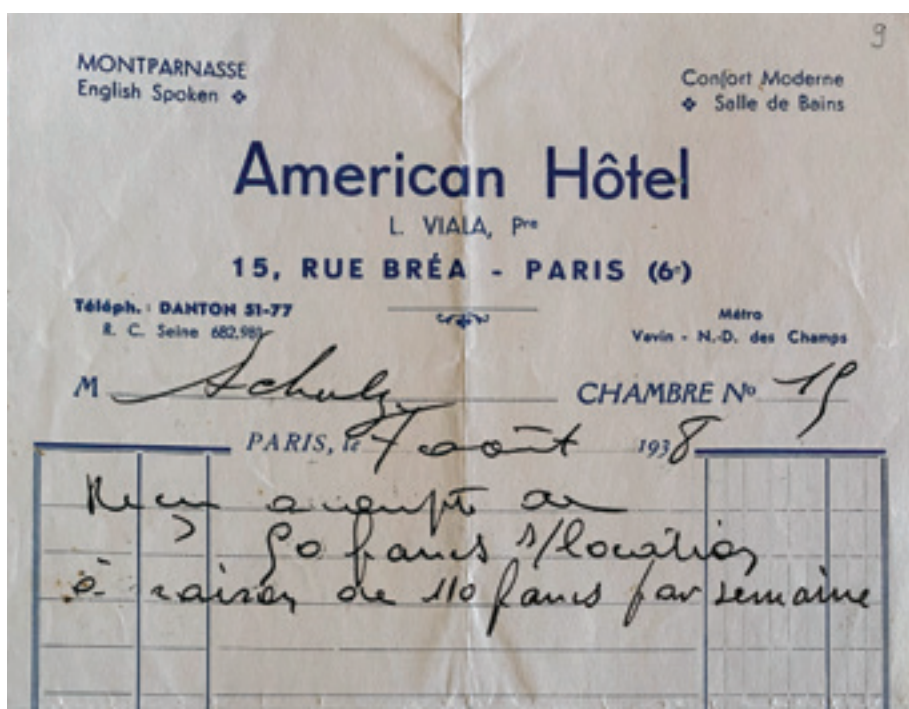 9
MONTPARNASSE
English Spoken ❖
Confort Moderne
❖ Salle de Bains
American Hôtel
L. VIALA, Pre
15, RUE BRÉA - PARIS (6e)
Téléph. : DANTON 51-77
R. C. Seine 682.989
Métro
Vavin - N.-D. des Champs
M Schulz CHAMBRE No 15
PARIS, le 7 août 1938
Reçu acompte de
50 francs s/location
à raison de 110 francs par semaine